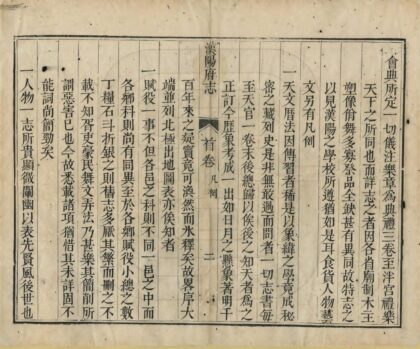 會典所定一切儀注樂章為典禮三卷至泮宮禮樂
天下之所同也而詳志之者因各自廟制木主
塑像俏舞多寡登品全缺甚有異同故特志之
以見漢陽之學校所遵猶如是耳食貨人物藝
文另有凡例
一天文曆法因傳習者稀是以象緯之學竟成秘
密之藏列史是非無敢過而問者一切志書每
至天官一卷末後總歸以俟後之知天者為之
正訂今歷象考成一出如日月之懸象著明千
漢陽府志
首卷
凡例
二
百年來之疑竇竟可渙然而氷釋矣故畧序大
端並列北極出地圖表亦俟知者
一賦役一事不但各邑之科則不同一邑之中而
各鄉科則尚有同異至於各鄉賦役小總之數
丁糧石斗折銀之則舊志多厭其繁而刪之不
載不知胥吏豪棍舞文弄法乃甚樂其簡削所
謂惡害己也今故悉載諸項猶惜其未詳固不
能詞尚簡勁矣
一人物一志所貴顯微闡幽以表先賢風後世也